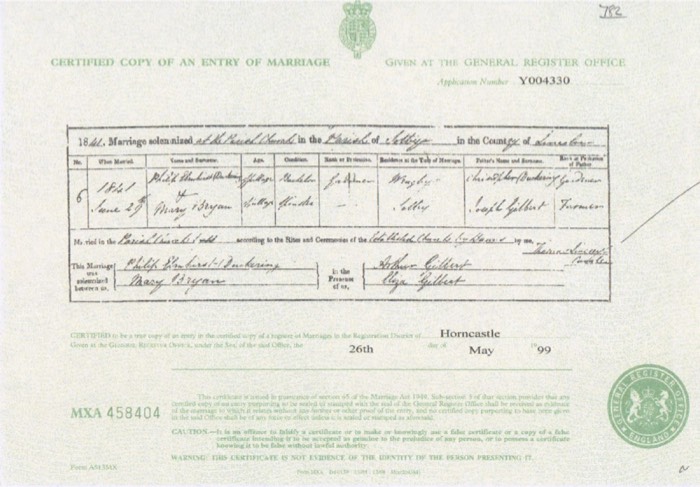 782
CERTIFIED COPY OF AN ENTRY OF MARRIAGE
GIVEN AT THE GENERAL REGISTER OFFICE
Application Number Y004330
1841. Marriage solemnized at the Parish Church in the Parish of in the County of
No. When Married. Name and Surname. Age. Condition. Rank or Profession. Residence at the Time of Marriage. Father's Name and Surname. Rank or Profession of Father.
6 1841 June 29th Philip Elmhirst Duckering full age Bachelor Gardener Wragby Christopher Duckering Gardener
& Mary Bryan full age Joseph Gilbert Farmer
Married in the Parish Church according to the Rites and Ceremonies of the Established Church by me,
This Marriage was solemnized between us, Philip Elmhirst Duckering Mary Bryan in the Presence of us, Arthur Gilbert Eliza Gilbert
CERTIFIED to be a true copy of an entry in the certified copy of a register of Marriages in the Registration District of Horncastle
Given at the GENERAL REGISTER OFFICE, under the Seal of the said Office, the 26th day of May 1999
MXA 458404
This certificate is issued in pursuance of section 65 of the Marriage Act 1949. Sub-section 3 of that section provides that any
certified copy of an entry purporting to be sealed or stamped with the seal of the General Register Office shall be received as evidence
of the marriage to which it relates without any further or other proof of the entry, and no certified copy purporting to have been given
in the said Office shall be of any force or effect unless it is sealed or stamped as aforesaid.
CAUTION—It is an offence to falsify a certificate or to make or knowingly use a false certificate or a copy of a false
certificate intending it to be accepted as genuine to the prejudice of any person, or to possess a certificate
knowing it to be false without lawful authority.
WARNING: THIS CERTIFICATE IS NOT EVIDENCE OF THE IDENTITY OF THE PERSON PRESENTING IT.
GENERAL REGISTER OFFICE
ENGLAND